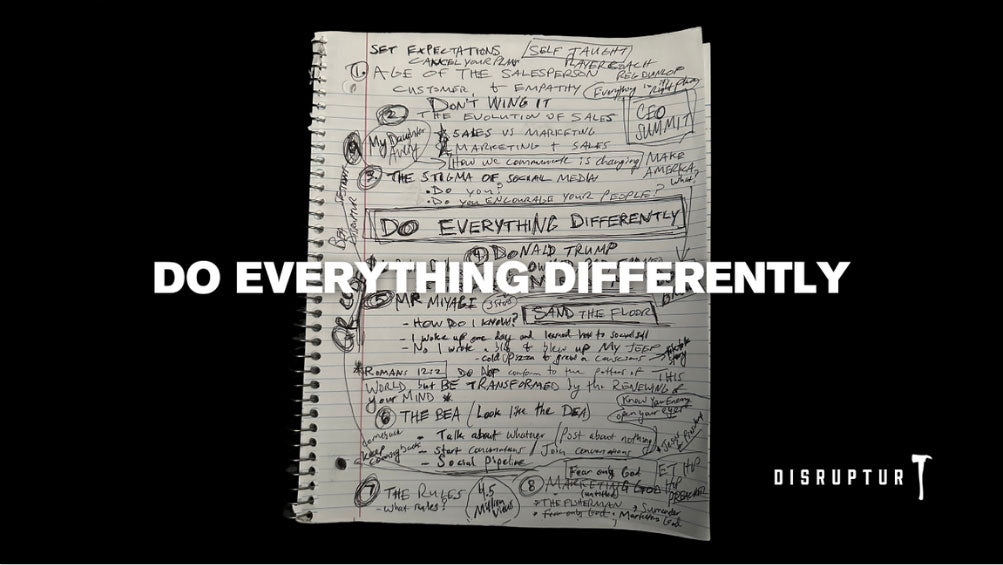 SET EXPECTATIONS
SELF TAUGHT
CANCEL YOUR PLAN
PLAYER COACH
REG DUNLOP
1. AGE OF THE SALESPERSON
CUSTOMER, & EMPATHY
Everything is
Right Place
DON'T WING IT
2 THE EVOLUTION OF SALES
CEO
SUMMIT
9
My Daughter
Avery
SALES VS MARKETING
MARKETING + SALES
How we communicate is changing
MAKE
AMERICA
What?
3. THE STIGMA OF SOCIAL MEDIA
• Do you?
• Do you ENCOURAGE YOUR PEOPLE?
DO EVERYTHING DIFFERENTLY
4 DONALD TRUMP
DO EVERYTHING DIFFERENTLY
5 MR MIYAGI
SAND THE FLOOR
- HOW DO I KNOW?
- I woke up one day and learned how to social sell
- No I wrote a blog to blew up MY JEEP
- cold pizza to grew a
* ROMANS 12:2 DO NOT conform to the pattern of THIS
WORLD but BE TRANSFORMED by the RENEWING of
your MIND *
Know Your Enemy
open your eyes
6 THE BEA (Look like the DEA)
- Talk about whatever (Post about nothing)
- Start conversations / Join conversations
- Social Pipeline
keep
coming back
Fear only God
7 THE RULES
- What rules?
4.5
Million
Views
8 MARKETING GOD
(untitled)
PREACHER
• THE FISHERMAN
• Surrender
• Fear only God
• Marketing God
DISRUPTUR